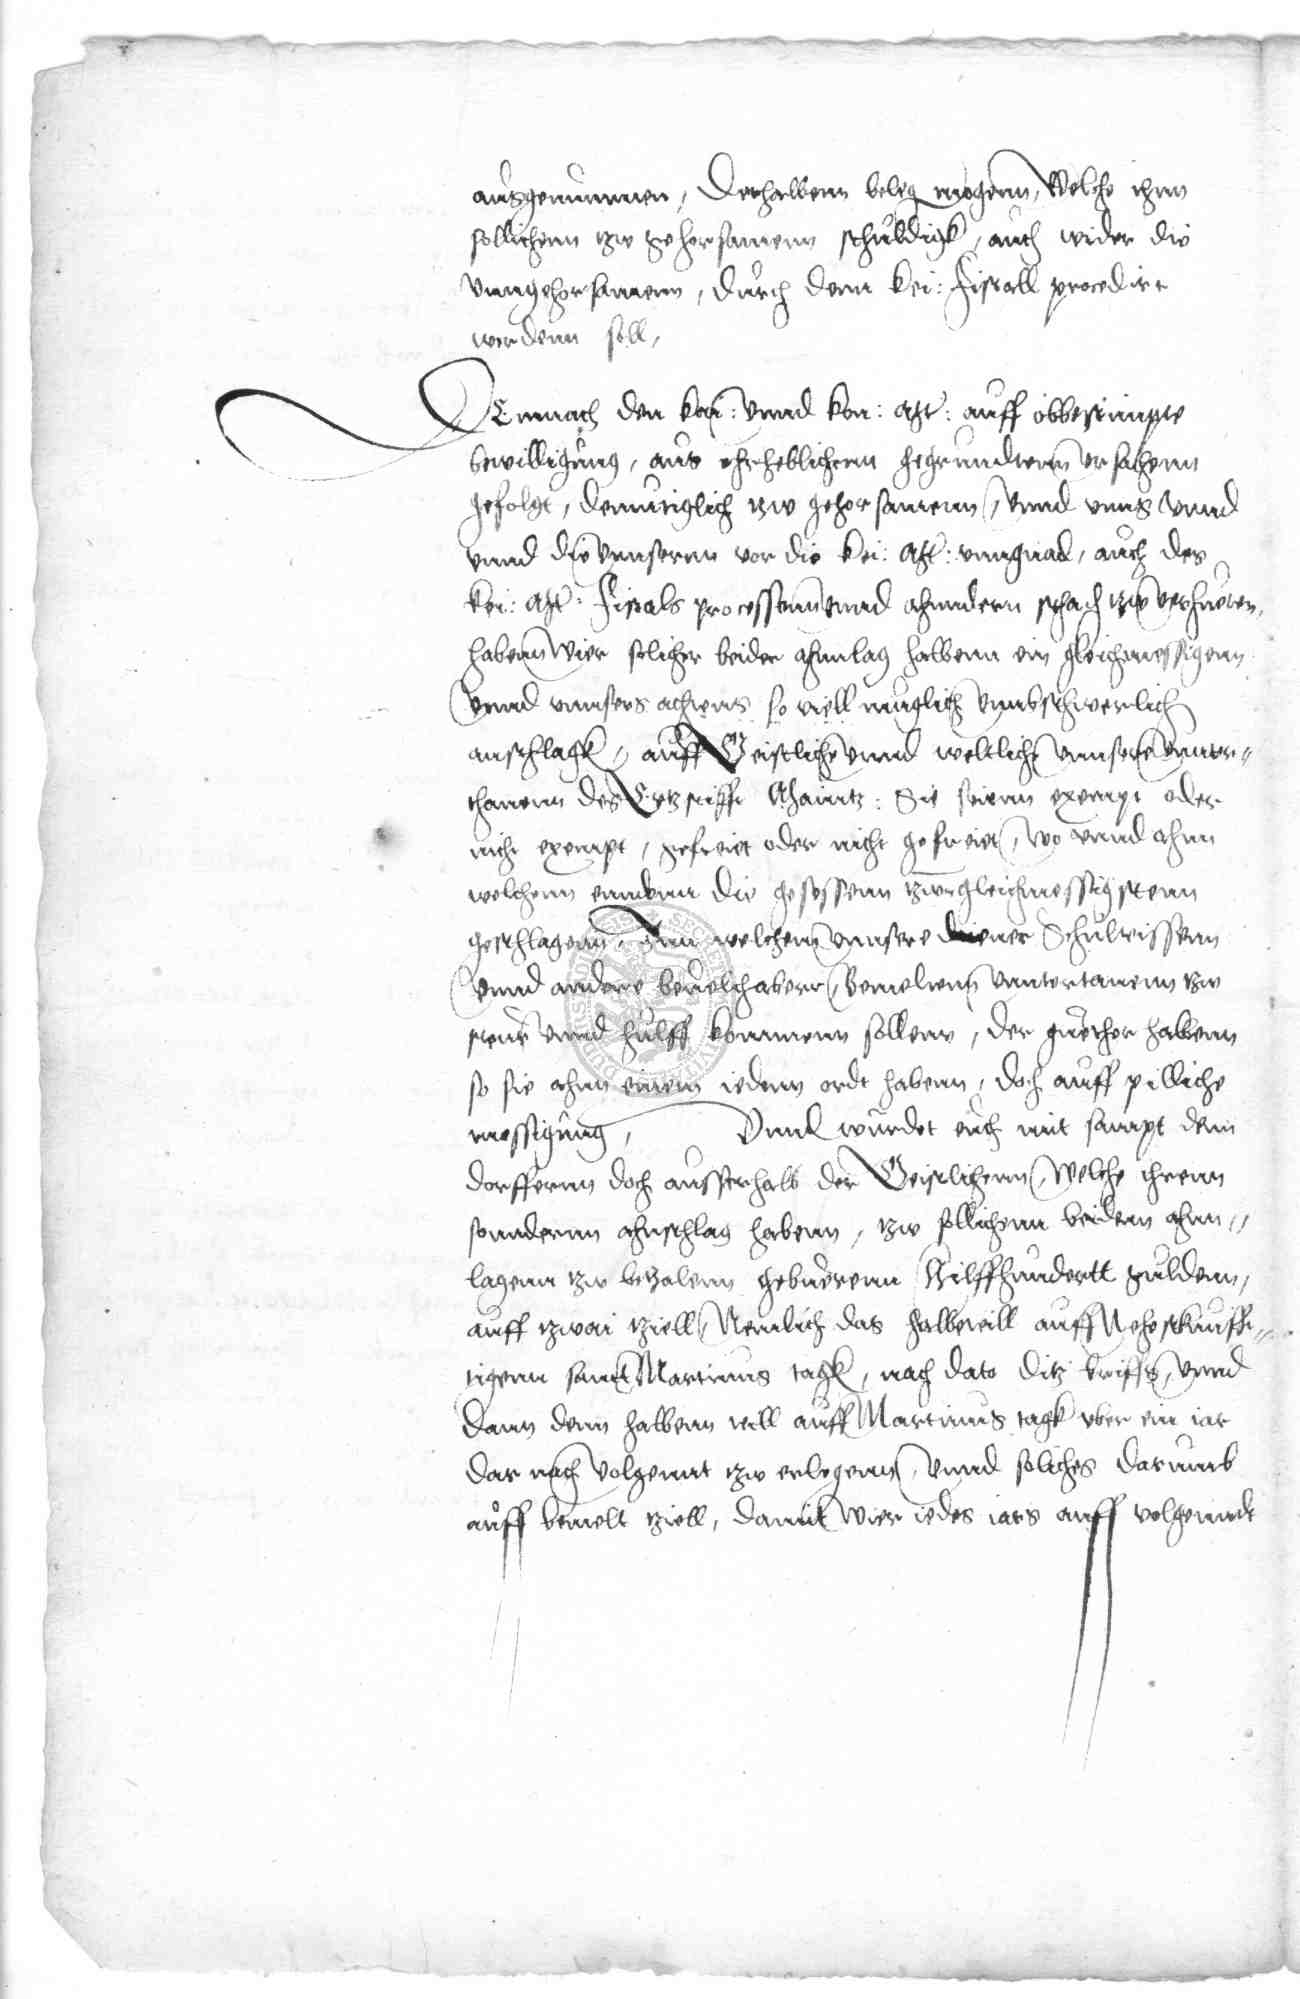 ausgenummen, Derhalbenn beleg mogenn, Welche ihm
sollichenn tzw gehorsamenn schuldigk, auch wider die
vnngehorsamenn, durch denn kei: Fiscall procedirt
werdenn soll,
DEmnach den kei: vnnd kon: Mt: auff obbestimpte
bewilligung, aus ehrheblichenn gegrundtenn vrsachenn
gefolgt, demutiglich tzw gehorsamenn, vnnd vnns vnnd
vnnd die vnnseren vor die kei: Mt: vnngnad, auch des
kei: Mt: Fiscals processenn vnnd ahnndern schach tzw verhueten,
habenn wier solicher beider ahnlag halbenn ein gleichmessigenn
vnnd vnnsers achtens so viell muglich vnnbschwerlich
anschlagk, auff Geistliche vnnd weltliche vnnsere vnnter-
thanenn des Ertzstifft Maintz: Sie seienn exempt oder
nicht exempt, gefreiet oder nicht gefreiet, wo vnnd ahnn
welchenn enndenn die gesessenn tzwm gleichmessigstenn
geschlagenn, Inn welchem vnnsere diener Schulteissenn
vnnd andere beuelchaberr, bemeltenn vnntertanenn tzw
steur vnnd hulff kommenn sollenn, der guether halbenn
so sie ahnn einem iedenn ordt habenn, doch auff pilliche
messigung, Vnnd wurdet euch mit sampt denn
dorffernn doch ausserhalb der Geistlichenn, Welche ihrenn
sonndernn ahnschlag habenn, tzw sollichenn beidenn ahnn-
lagenn tzw betzalenn gebuerenn Eilffhundertt guldenn,
auff tzwai tziell, Nemlich das halbteill auff Nehestkunff-
tigenn sanct Martinus tagk, nach dato ditz brieffs, vnnd
dann denn halbenn teill auff Martinus tagk vber ein iar
dar nach volgennt tzw erlegenn, vnnd soliches darumb
auff bemelt tziell, damit wier iedes iars auff volgenndt